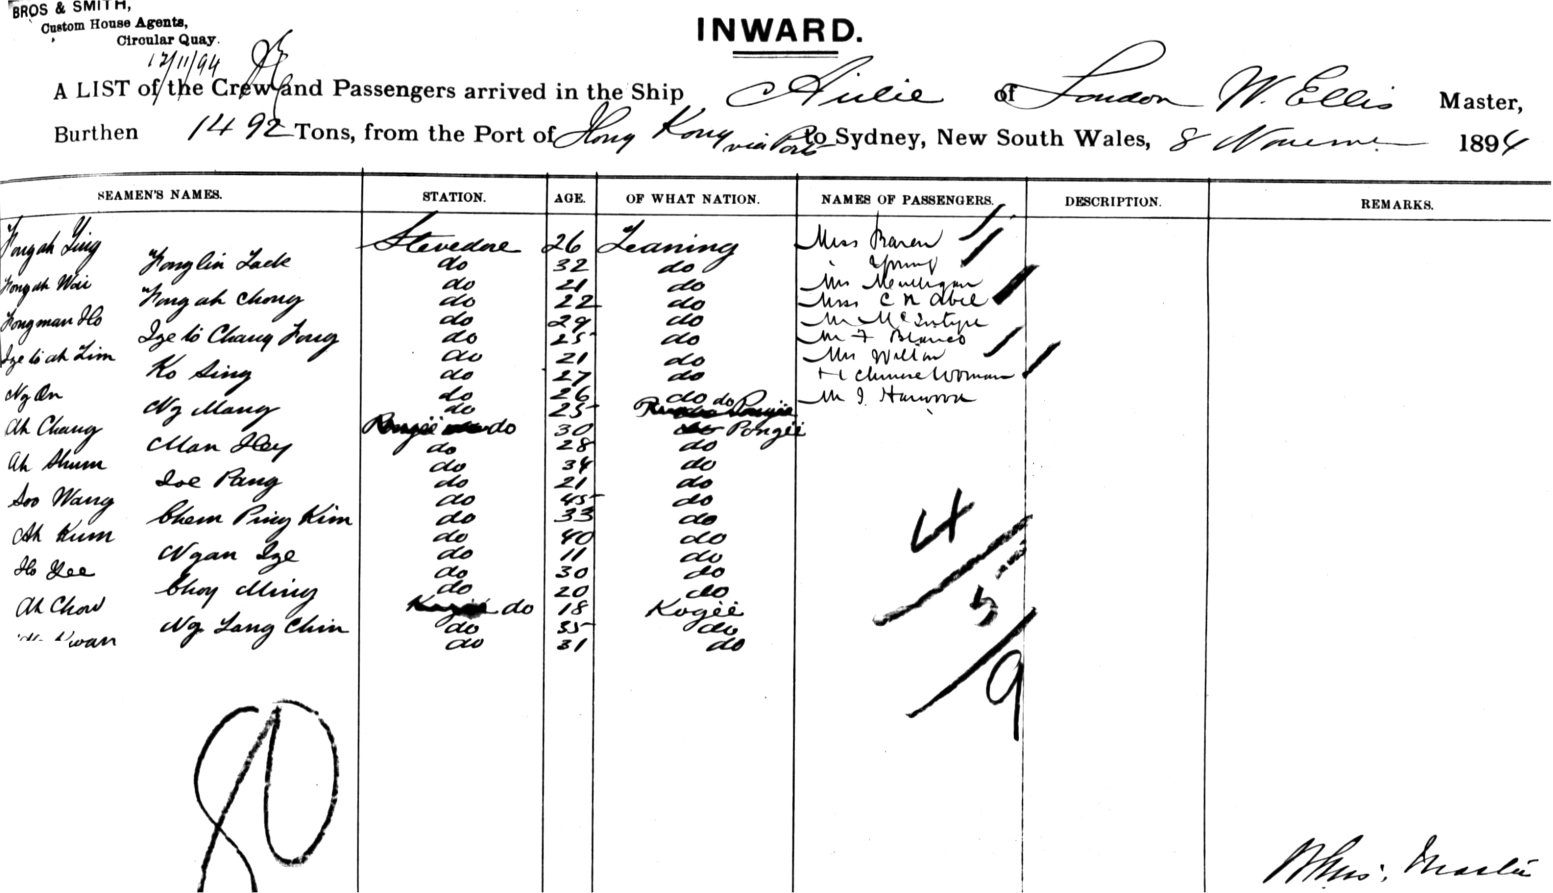 BROS & SMITH,
Custom House Agents,
Circular Quay.
12/11/94
INWARD.
A LIST of the Crew and Passengers arrived in the Ship Airlie of London W. Ellis Master,
Burthen 1492 Tons, from the Port of Hong Kong via Ports to Sydney, New South Wales, 8 November 1894
SEAMEN'S NAMES. STATION. AGE. OF WHAT NATION. NAMES OF PASSENGERS. DESCRIPTION. REMARKS.
Fong ah Ying Stevedore 26 Leaning Miss
Fong lin Tack do 32 do Young
Fong ah Wai do 21 do Mulligan
Fong ah Chong do 22 do Miss C N Abie
Fong man Ho do 29 do Mr McIntype
Ize to Chang Fong do 25 do Mr F Blanco
Ize to ah Lim do 21 do Mrs
Ko Sing do 27 do Chinese Woman
Ng On do 26 do Mr J. Harwood
Ng Mang do 25 do
Ah Chang do 30 Pongii
Man Hey do 28 do
Ah Shum do 34 do
Ioe Pang do 21 do
Soo Wang do 45 do
Chem Ping Kim do 33 do
Ah Kum do 40 do
Ngan Ize do 11 do
Ho Yee do 30 do
Choy Ming do 20 do
Ah Chow do 18 Kogii
Ng Lang Chin do 35 do
Kwan do 31 do
4
5
9
80
Master